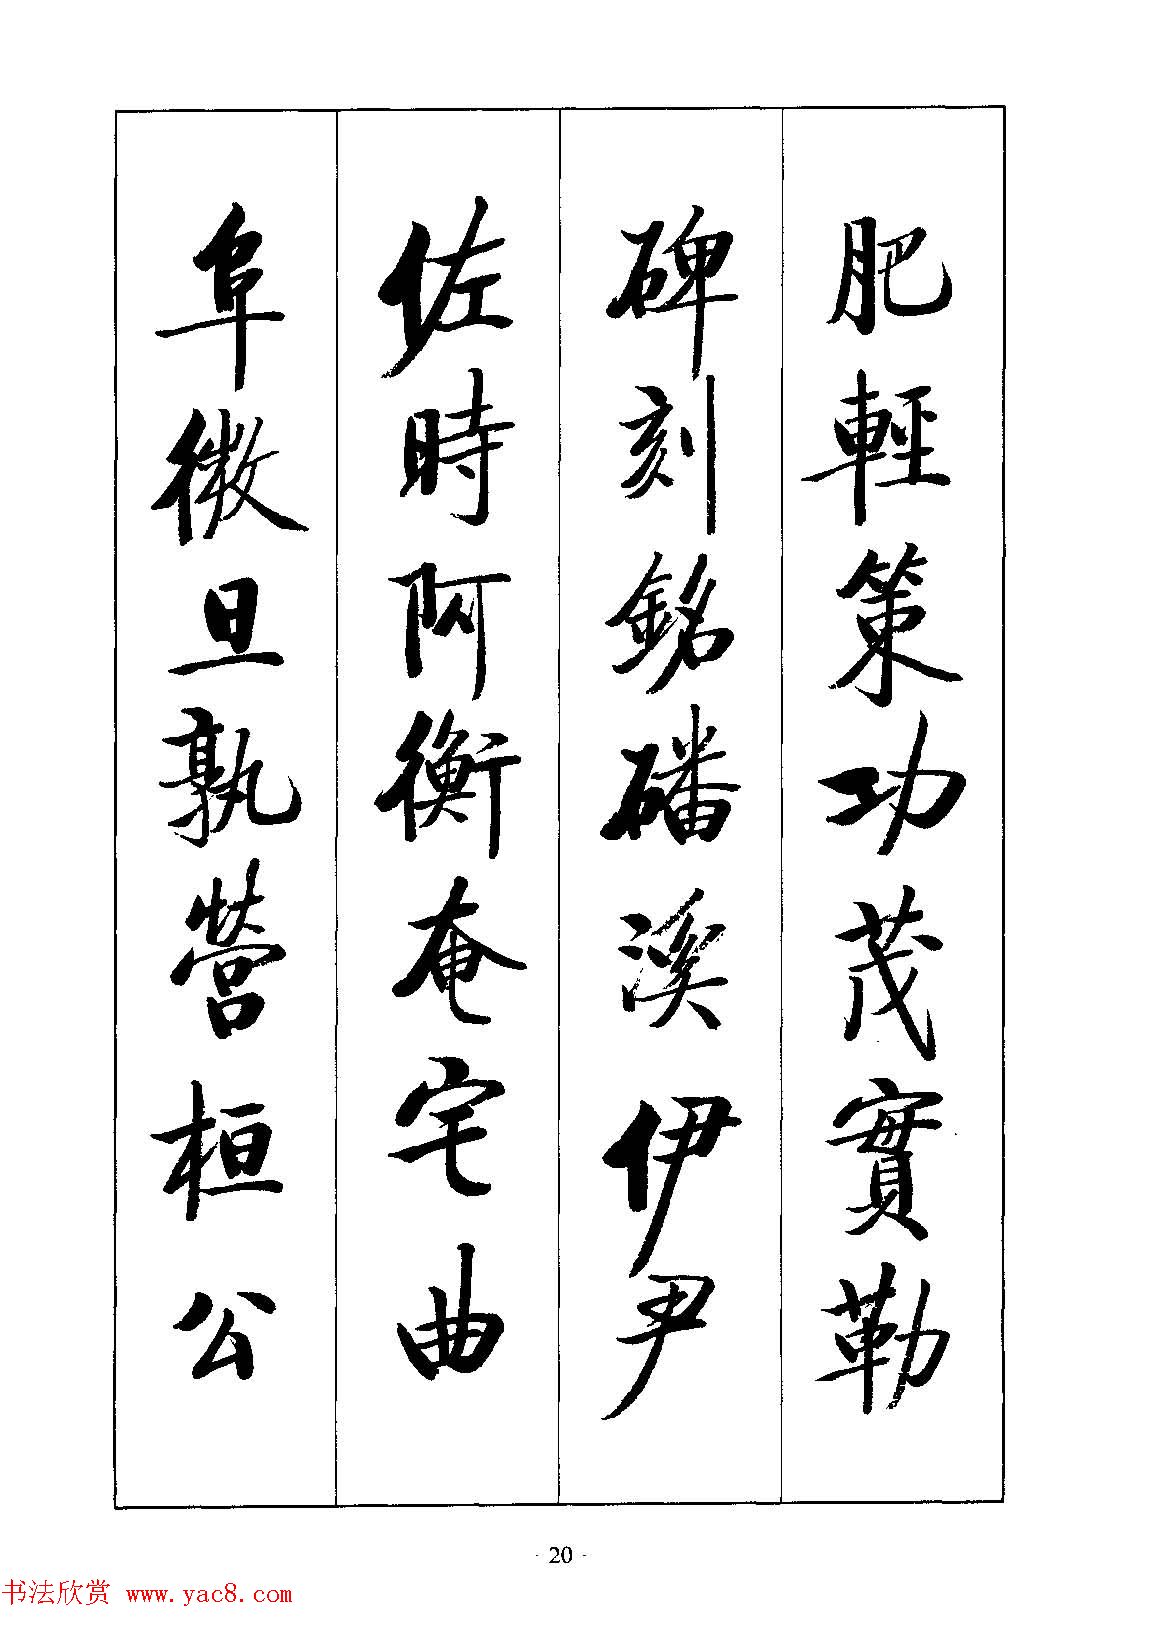 肥輕策功茂實勒
碑刻銘磻溪伊尹
佐時阿衡奄宅曲
阜微旦孰營桓公
· 20 ·
书法欣赏 www.yac8.com